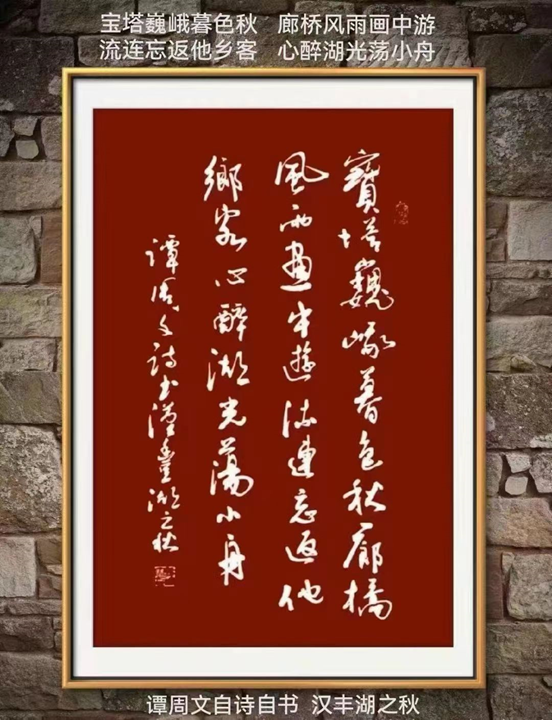 宝塔巍峨暮色秋 廊桥风雨画中游
流连忘返他乡客 心醉湖光荡小舟
寶塔巍峨暮色秋廊橋
風雨畫中遊流連忘返他
鄉客心醉湖光蕩小舟
谭周文诗书漢豐湖之秋
谭周文自诗自书 汉丰湖之秋